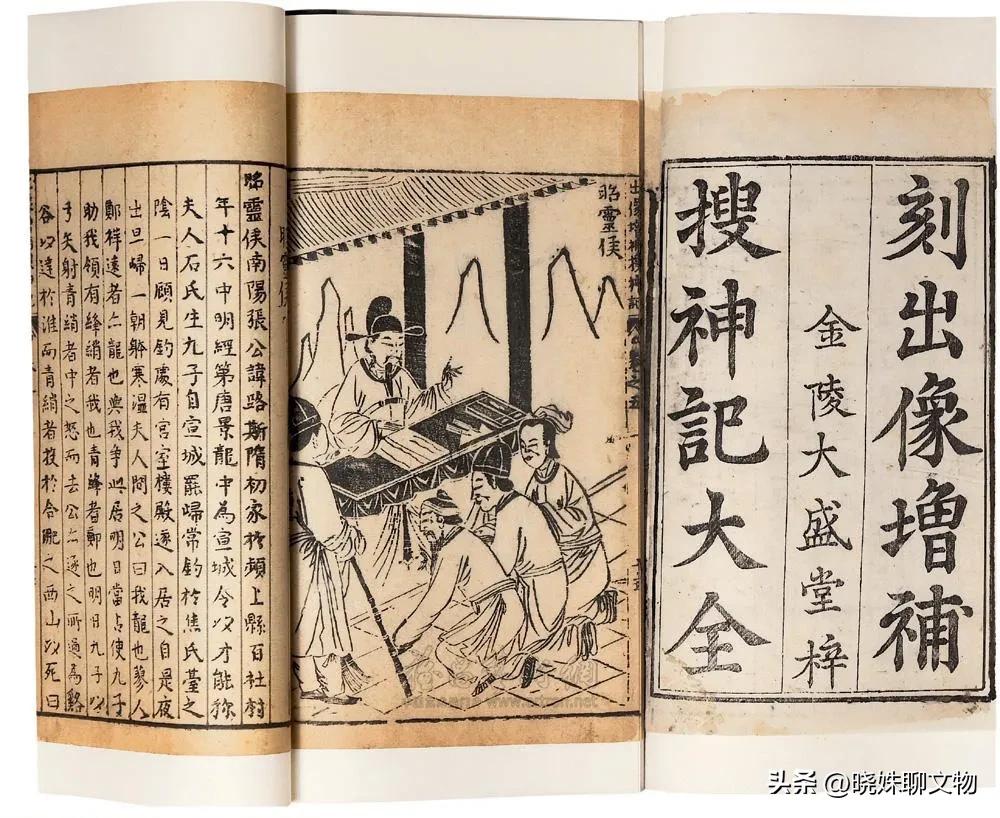 刻出像增補
金陵大盛堂梓
搜神記大全
出像增補搜神記
卷之五
昭靈侯
昭靈侯南陽張公諱路斯隋初家於頴上縣百社村
年十六中明經第唐景龍中為宣城令以才能稱
夫人石氏生九子自宣城罷歸常釣於焦氏臺之
陰一日顧見釣處有宮室樓殿遂入居之自是夜
出旦歸一朝躰寒温夫人問之公曰我龍也蓼人
鄭祥遠者亦龍也與我爭此居明日當占使九子
助我領有絳綃者我也青綃者鄭也明日九子以
弓矢射青綃者中之怒而去公亦逐之所過為谿
谷以達於淮而青綃者投於合肥之西山以死曰
头条 @晓姝聊文物